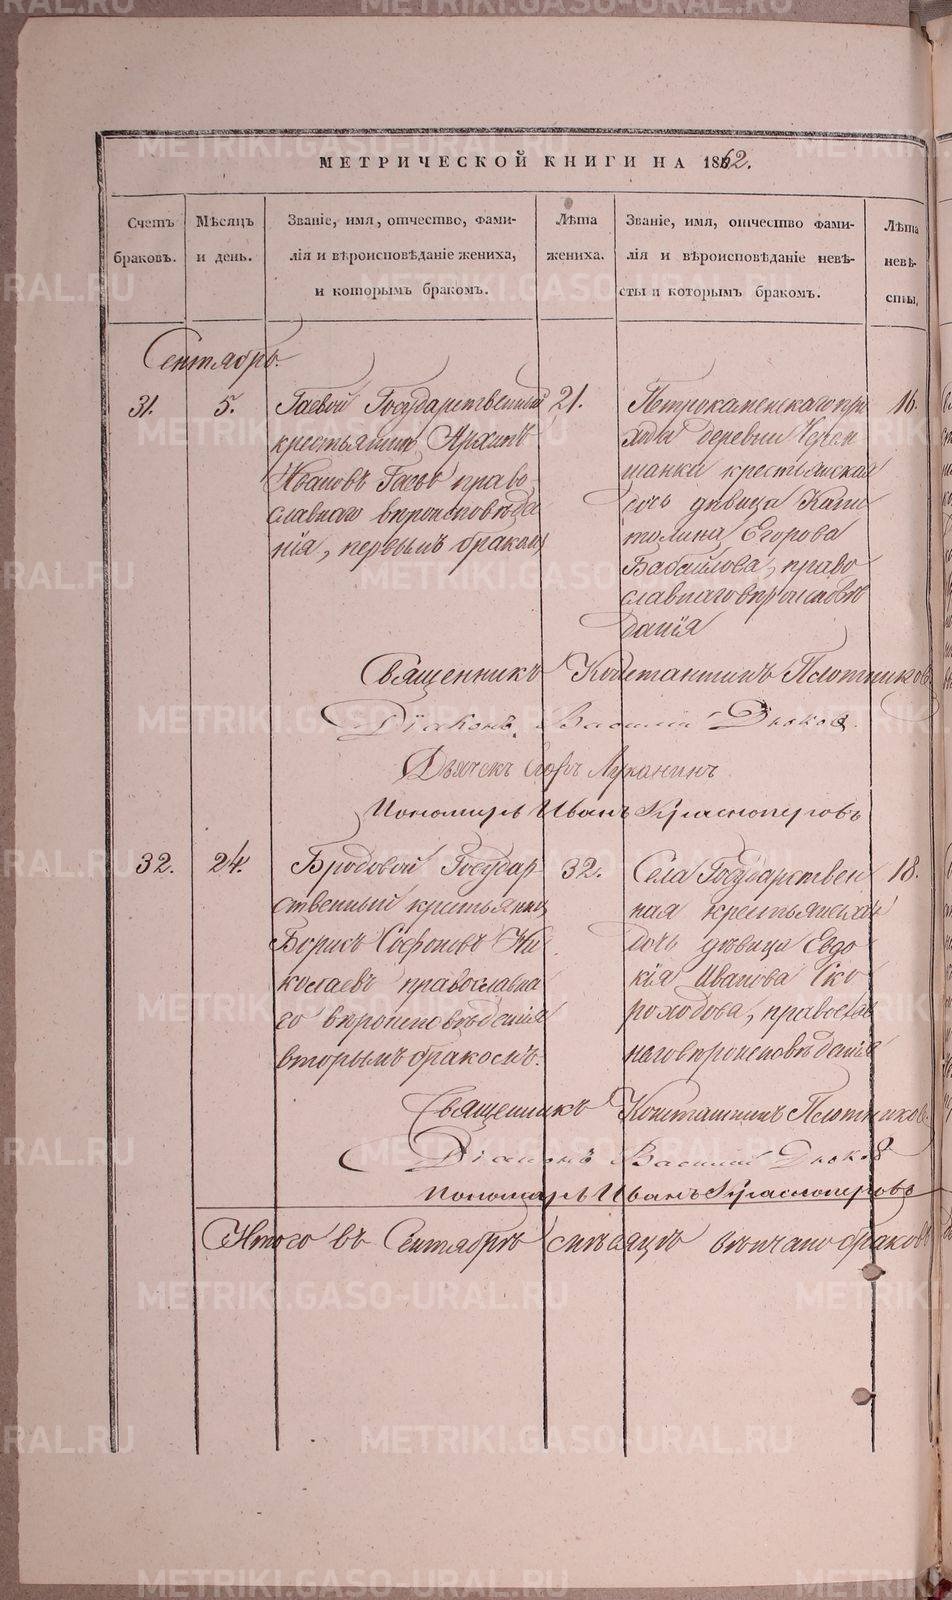 МЕТРИЧЕСКОЙ КНИГИ НА 1862.
Счетъ браковъ.
Мѣсяцъ и день.
Званіе, имя, отчество, фами-
лія и вѣроисповѣданіе жениха,
и которымъ бракомъ.
Лѣта жениха.
Званіе, имя, отчество фами-
лія и вѣроисповѣданіе невѣ-
сты и которымъ бракомъ.
Лѣта невѣ-
сты,
Сентябрь.
31.
5.
Гаевой Государственный
крестьянинъ Архипъ
Ивановъ Гаевъ право
славнаго вѣроисповѣда
нія, первымъ бракомъ
21.
Петрокаменскаго при
хода деревни
шанки крестьянская
дочь дѣвица Капи
толина Егорова
Бабайлова, право
славнаго вѣроисповѣ
данія
16.
Священникъ Константинъ Плотниковъ
Діаконъ Василій Дьяков
Дьячекъ Луканинъ
Пономарь Иванъ Красноперовъ
32.
24.
Бродовой Государ
ственный крестьянинъ
Борисъ Софоновъ Ни
колаевъ православна
го вѣроисповѣданія
вторымъ бракомъ.
32.
Села Государствен
ная крестьянская
дочь дѣвица Евдо
кія Иванова Ско
роходова, православ
наго вѣроисповѣданія
18.
Священникъ Константинъ Плотниковъ
Діаконъ Василій Дьяков
Пономарь Иванъ Красноперовъ
Итого въ Сентябрѣ мѣсяцѣ вѣнчано браковъ
METRIKI.GASO-URAL.RU